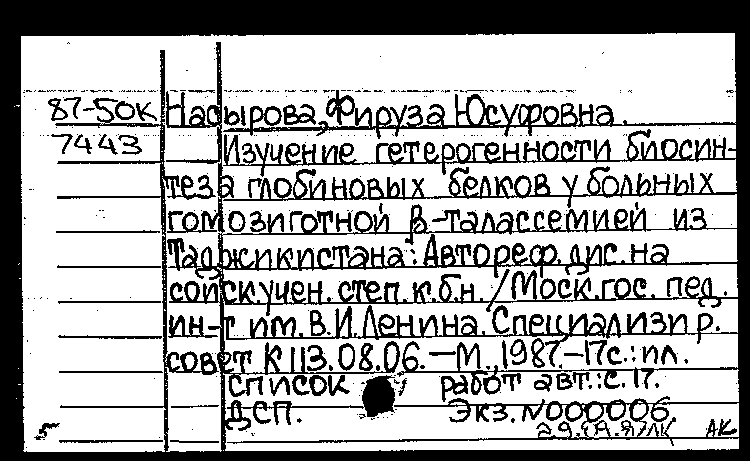 87-50К Насырова, Фируза Юсуфовна.
7443 Изучение гетерогенности биосин-
теза глобиновых белков у больных
гомозиготной β-талассемией из
Таджикистана: Автореф. дис. на
соиск. учен. степ. к.б.н. / Моск. гос. пед.
ин-т им. В.И.Ленина. Специализир.
совет К 113.08.06. – М., 1987. – 17с.: ил.
список работ авт.: с. 17.
ДСП. Экз. N000006.
5 АК